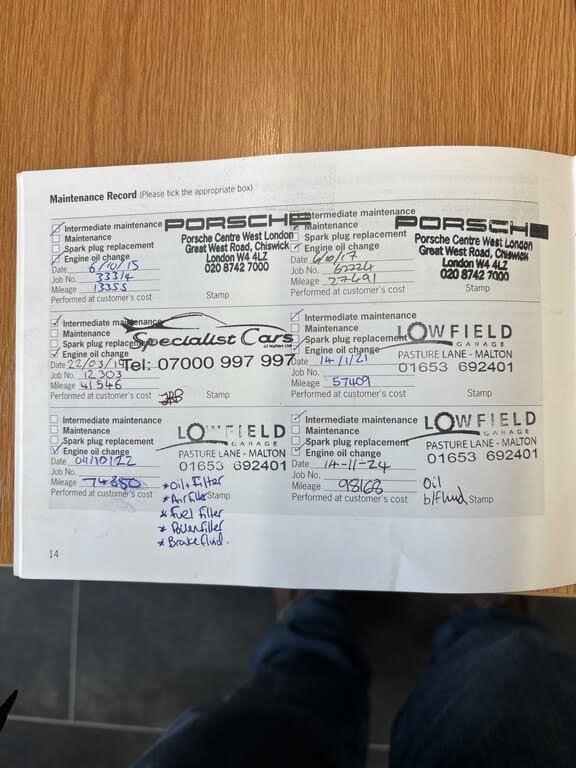 Maintenance Record (Please tick the appropriate box)
Intermediate maintenance
Maintenance
Spark plug replacement
Engine oil change
Date 6/10/15
Job No. 33314
Mileage 13355
Performed at customer's cost
Stamp
PORSCHE
Porsche Centre West London
Great West Road, Chiswick
London W4 4LZ
020 8742 7000
Intermediate maintenance
Maintenance
Spark plug replacement
Engine oil change
Date 6/10/17
Job No. 62224
Mileage 27491
Performed at customer's cost
Stamp
PORSCHE
Porsche Centre West London
Great West Road, Chiswick
London W4 4LZ
020 8742 7000
Intermediate maintenance
Maintenance
Spark plug replacement
Engine oil change
Date 22/03/19
Job No. 12303
Mileage 41546
Performed at customer's cost
Stamp
Specialist Cars
of Malton Ltd
Tel: 07000 997 997
Intermediate maintenance
Maintenance
Spark plug replacement
Engine oil change
Date 14/1/21
Job No.
Mileage 57409
Performed at customer's cost
Stamp
LOWFIELD
GARAGE
PASTURE LANE - MALTON
01653 692401
Intermediate maintenance
Maintenance
Spark plug replacement
Engine oil change
Date 04/10/22
Job No.
Mileage
Performed at customer's cost
Stamp
LOWFIELD
GARAGE
PASTURE LANE - MALTON
01653 692401
* Oil + Filter
* Air filter
* Fuel filter
* Pollen filter
* Brake fluid.
Intermediate maintenance
Maintenance
Spark plug replacement
Engine oil change
Date 14-11-24
Job No.
Mileage 98168
Performed at customer's cost
Stamp
LOWFIELD
GARAGE
PASTURE LANE - MALTON
01653 692401
Oil
b/fluid
14